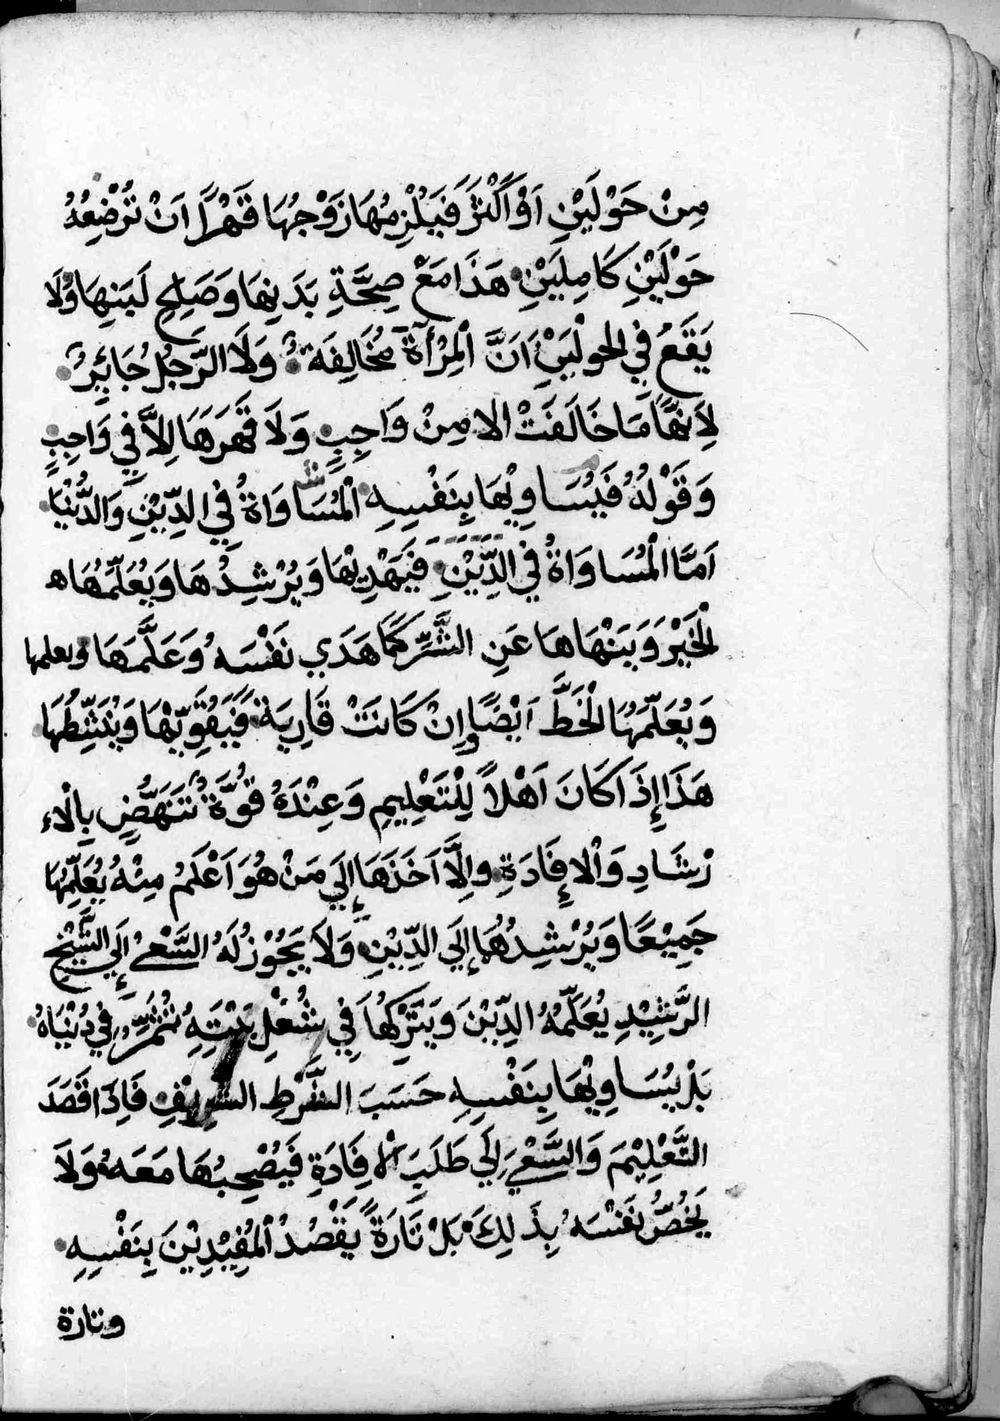 مِنْ حَوْلَيْنِ اَوْ اَكْثَرَ فَيَلْزِمُهَا زَوْجُهَا قَهْرًا اَنْ تُرْضِعُهُ
حَوْلَيْنِ كَامِلَيْنِ هَذَا مَعْ صِحَّةِ بَدَنِهَا وَصَلِحِ لَبَنِهَا وَلَا
يَقَعُ فِي الحَوْلَيْنِ اَنَّ الْمِرْأَةَ مُخَالِفَة وَلَا الرَّجُلُ جَائِرُ
لِاَنَّهَا مَا خَالَفَتْ الا مِنْ وَاجِبٍ وَلَا قَهَرَهَا اِلاَّ فِي وَاجِبٍ
وَقَوْلُهُ فَيُسَاوِيْهَا بِنَفْسِهِ الْمُسَاوَاةُ فِي الدِّيْنِ وَالدُّنْيَا
اَمَّا الْمُسَاوَاةُ فِي الدِّيْنِ فَيَهْدِيْهَا وَيُرْشِدُهَا وَيُعَلِّمُهَا ه
الْخَيْرَ وَيَنْهَاهَا عَنِ الشَّرِّ كَمَا هَدَي نَفْسَهُ وَعَلَّمَهَا ويعلمها
وَيُعَلِّمُهَا الْخَطَّ اَيْضًا وَاِنْ كَانَتْ قَارِيَة فَيُقَوِّيْهَا وَيُنَشِّطُهَا
هَذَا إِذَا كَانَ اَهْلاً لِلْتَعْلِيمِ وَعِنْدَهُ قُوَّةُ تَنَهُّضٍ بِالْاءِ
رْشَادِ وَالْاِفَادَةِ وِالَّا اَخَذَهَا اِلَي مَنْ هُوَ اَعْلَمُ مِنْهُ يُعَلِّمُهَا
جَمِيْعًا وَيُرْشِدُهُمَا اِلَي الدِّيْنِ وَلَا يَجُوْزُ لَهُ السَّعْيُ اِلَي الشَّيْخِ
الرَّشِيْدِ يُعَلِّمُهُ الدِّيْنَ وَيَتْرُكُهَا فِي شُغْلِ بَيْتِهِ تُثَمِّرُ فِي دُنْيَاهُ
بَلْ يُسَاوِيْهَا بِنَفْسِهِ حَسَبَ الشَّرْطِ الشَّرِيْفِ فَاِذَا قَصَدَ
التَّعْلِيْمَ وَالسَّعْيَ اِلَي طَلَبِ الْاِفَادَةِ فَيُصْحِبُهَا مَعَهُ وَلَا
يَخُصُّ نَفْسَهُ بِذَلِكَ بَلْ تَارَةً يَقْصُدُ الْمُفِيْدِيْنَ بِنَفْسِهِ
وتارة